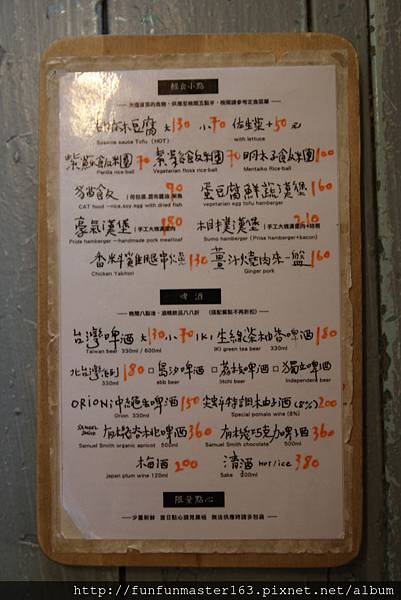 輕食小點
大 130 小 70 佐生菜 + 50 元
Sesame sauce Tofu (HOT) with lettuce
紫蘇飯糰 70 紫菜飯糰 70 明太子飯糰 100
Perilla rice-ball Vegetarian floss rice-ball Mentaiko Rice-ball
貓飯 90 蛋豆腐鮮蔬漢堡 160
CAT food —rice,soy egg with dried fish vegetarian egg tofu hamberger
豪氣漢堡 180 相撲漢堡 210
Pride hamberger —handmade pork meatloaf Sumo hamberger (Pride hamberger+bacon)
香料雞腿串燒 130 薑汁燒肉來一盤 160
Chicken Yakitori Ginger pork
啤酒
台灣啤酒 大 130 小 70 IKI 生綠茶柚香啤酒 180
Taiwan beer 330ml / 600ml IKI green tea beer 330ml
北台灣啤酒 180 □ 島汐啤酒 □ 荔枝啤酒 □ 獨立啤酒
330ml abb beer litchi beer Independent beer
ORION 沖繩生啤酒 150 特調柚子酒 (8%) 200
Orion 330ml Special pomelo wine (8%)
SAMUEL SMITH 有機杏桃啤酒 360 有機巧克力啤酒 360
Samuel Smith organic apricot 500ml Samuel Smith chocolate 500ml
梅酒 200 清酒 Hot/ice 380
Japan plum wine 120ml Sake 300ml
限量點心
http://funfunmaster163.pixnet.net/album